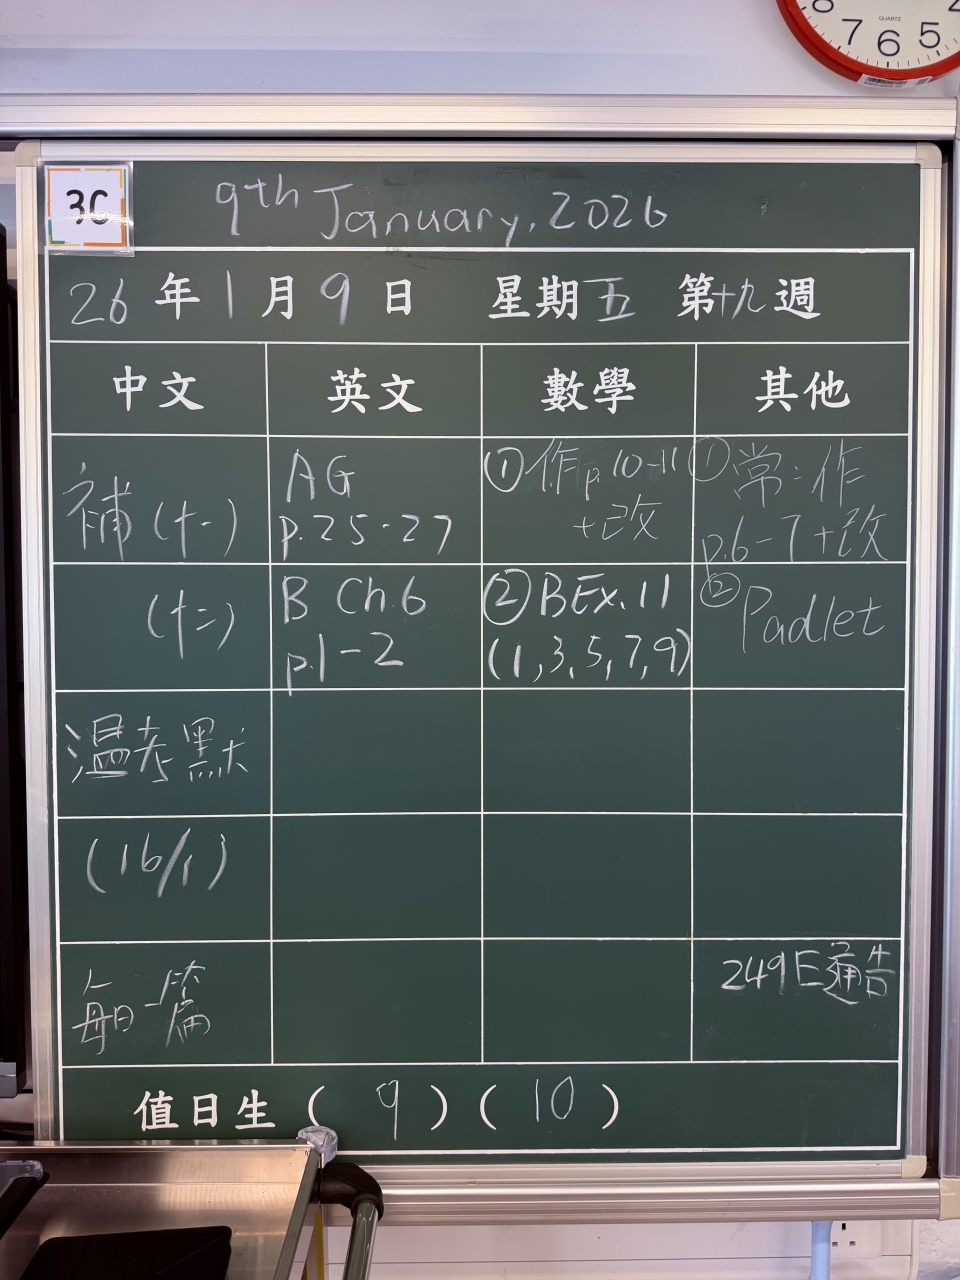 8 7 6 5 4
QUARTZ
3C
9th January, 2026
26年1月9日 星期五 第十九週
中文 英文 數學 其他
補(十一)
(十二)
溫考默
(16/1)
每日一篇
AG
p.25-27
B Ch.6
p.1-2
①作p.10-11
+改
②BEx.11
(1,3,5,7,9)
①常:作
p.6-7+改
②Padlet
249E通告
值日生(9)(10)